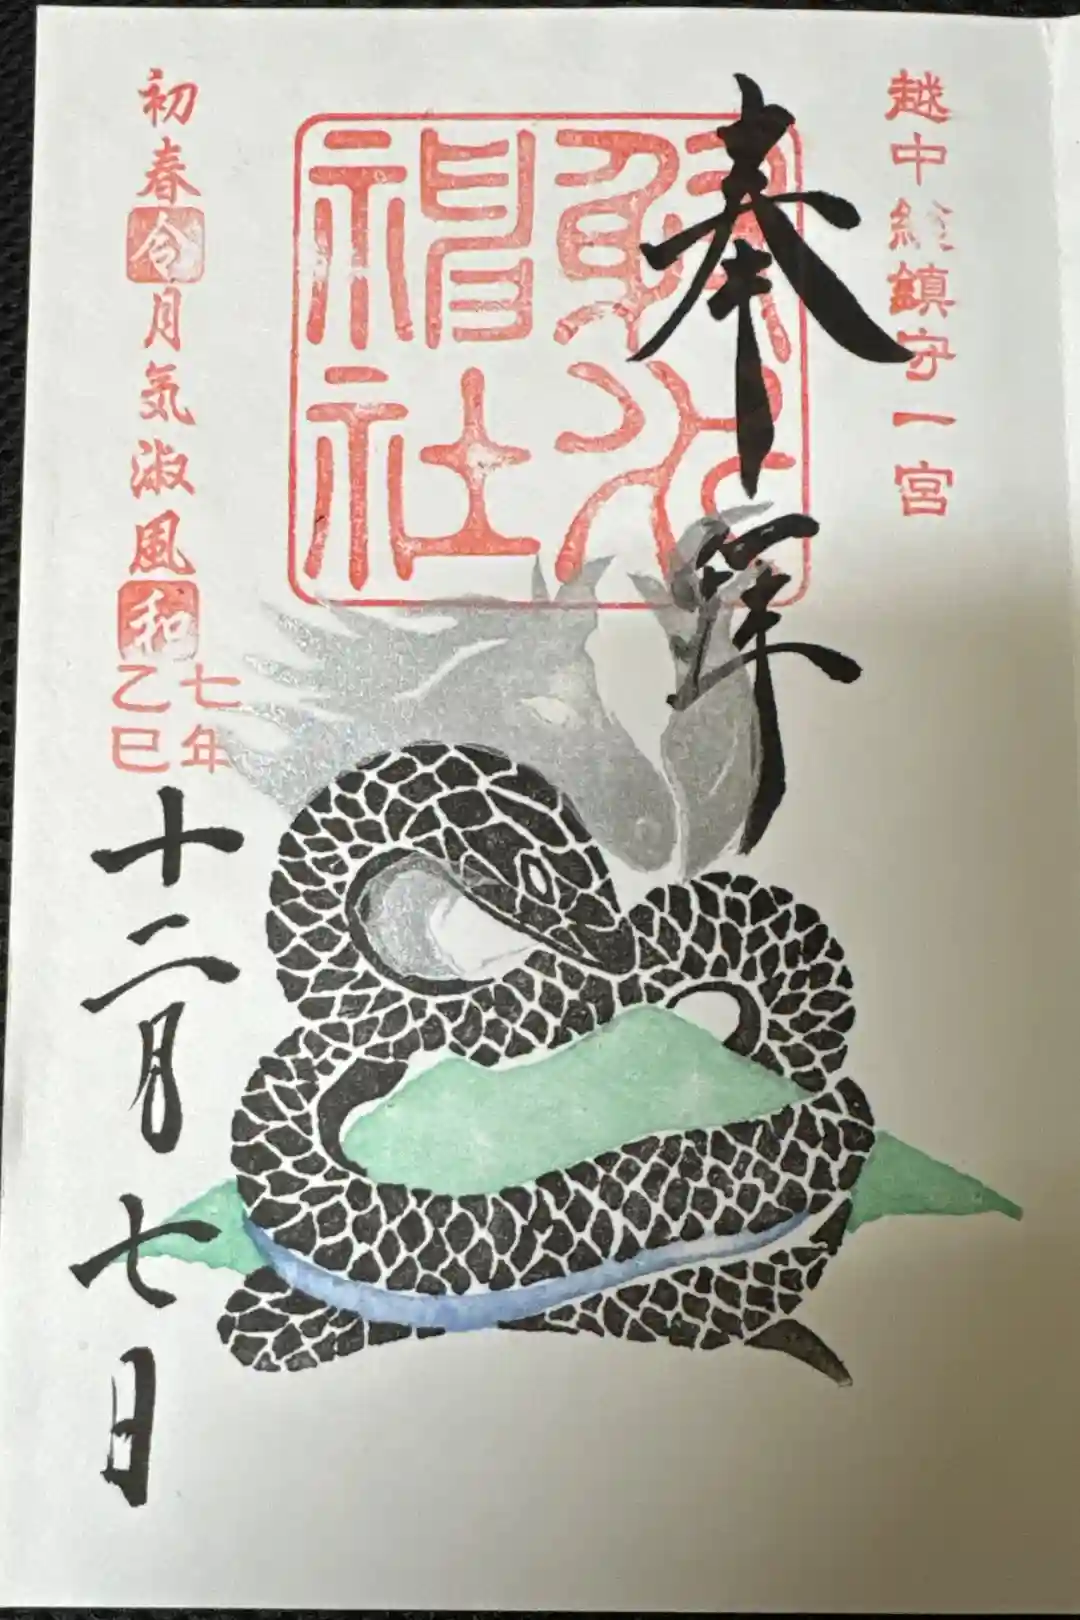 越中総鎮守一宮
奉拝
射水
神社
初春令月気淑風和
七年
乙巳
十二月七日